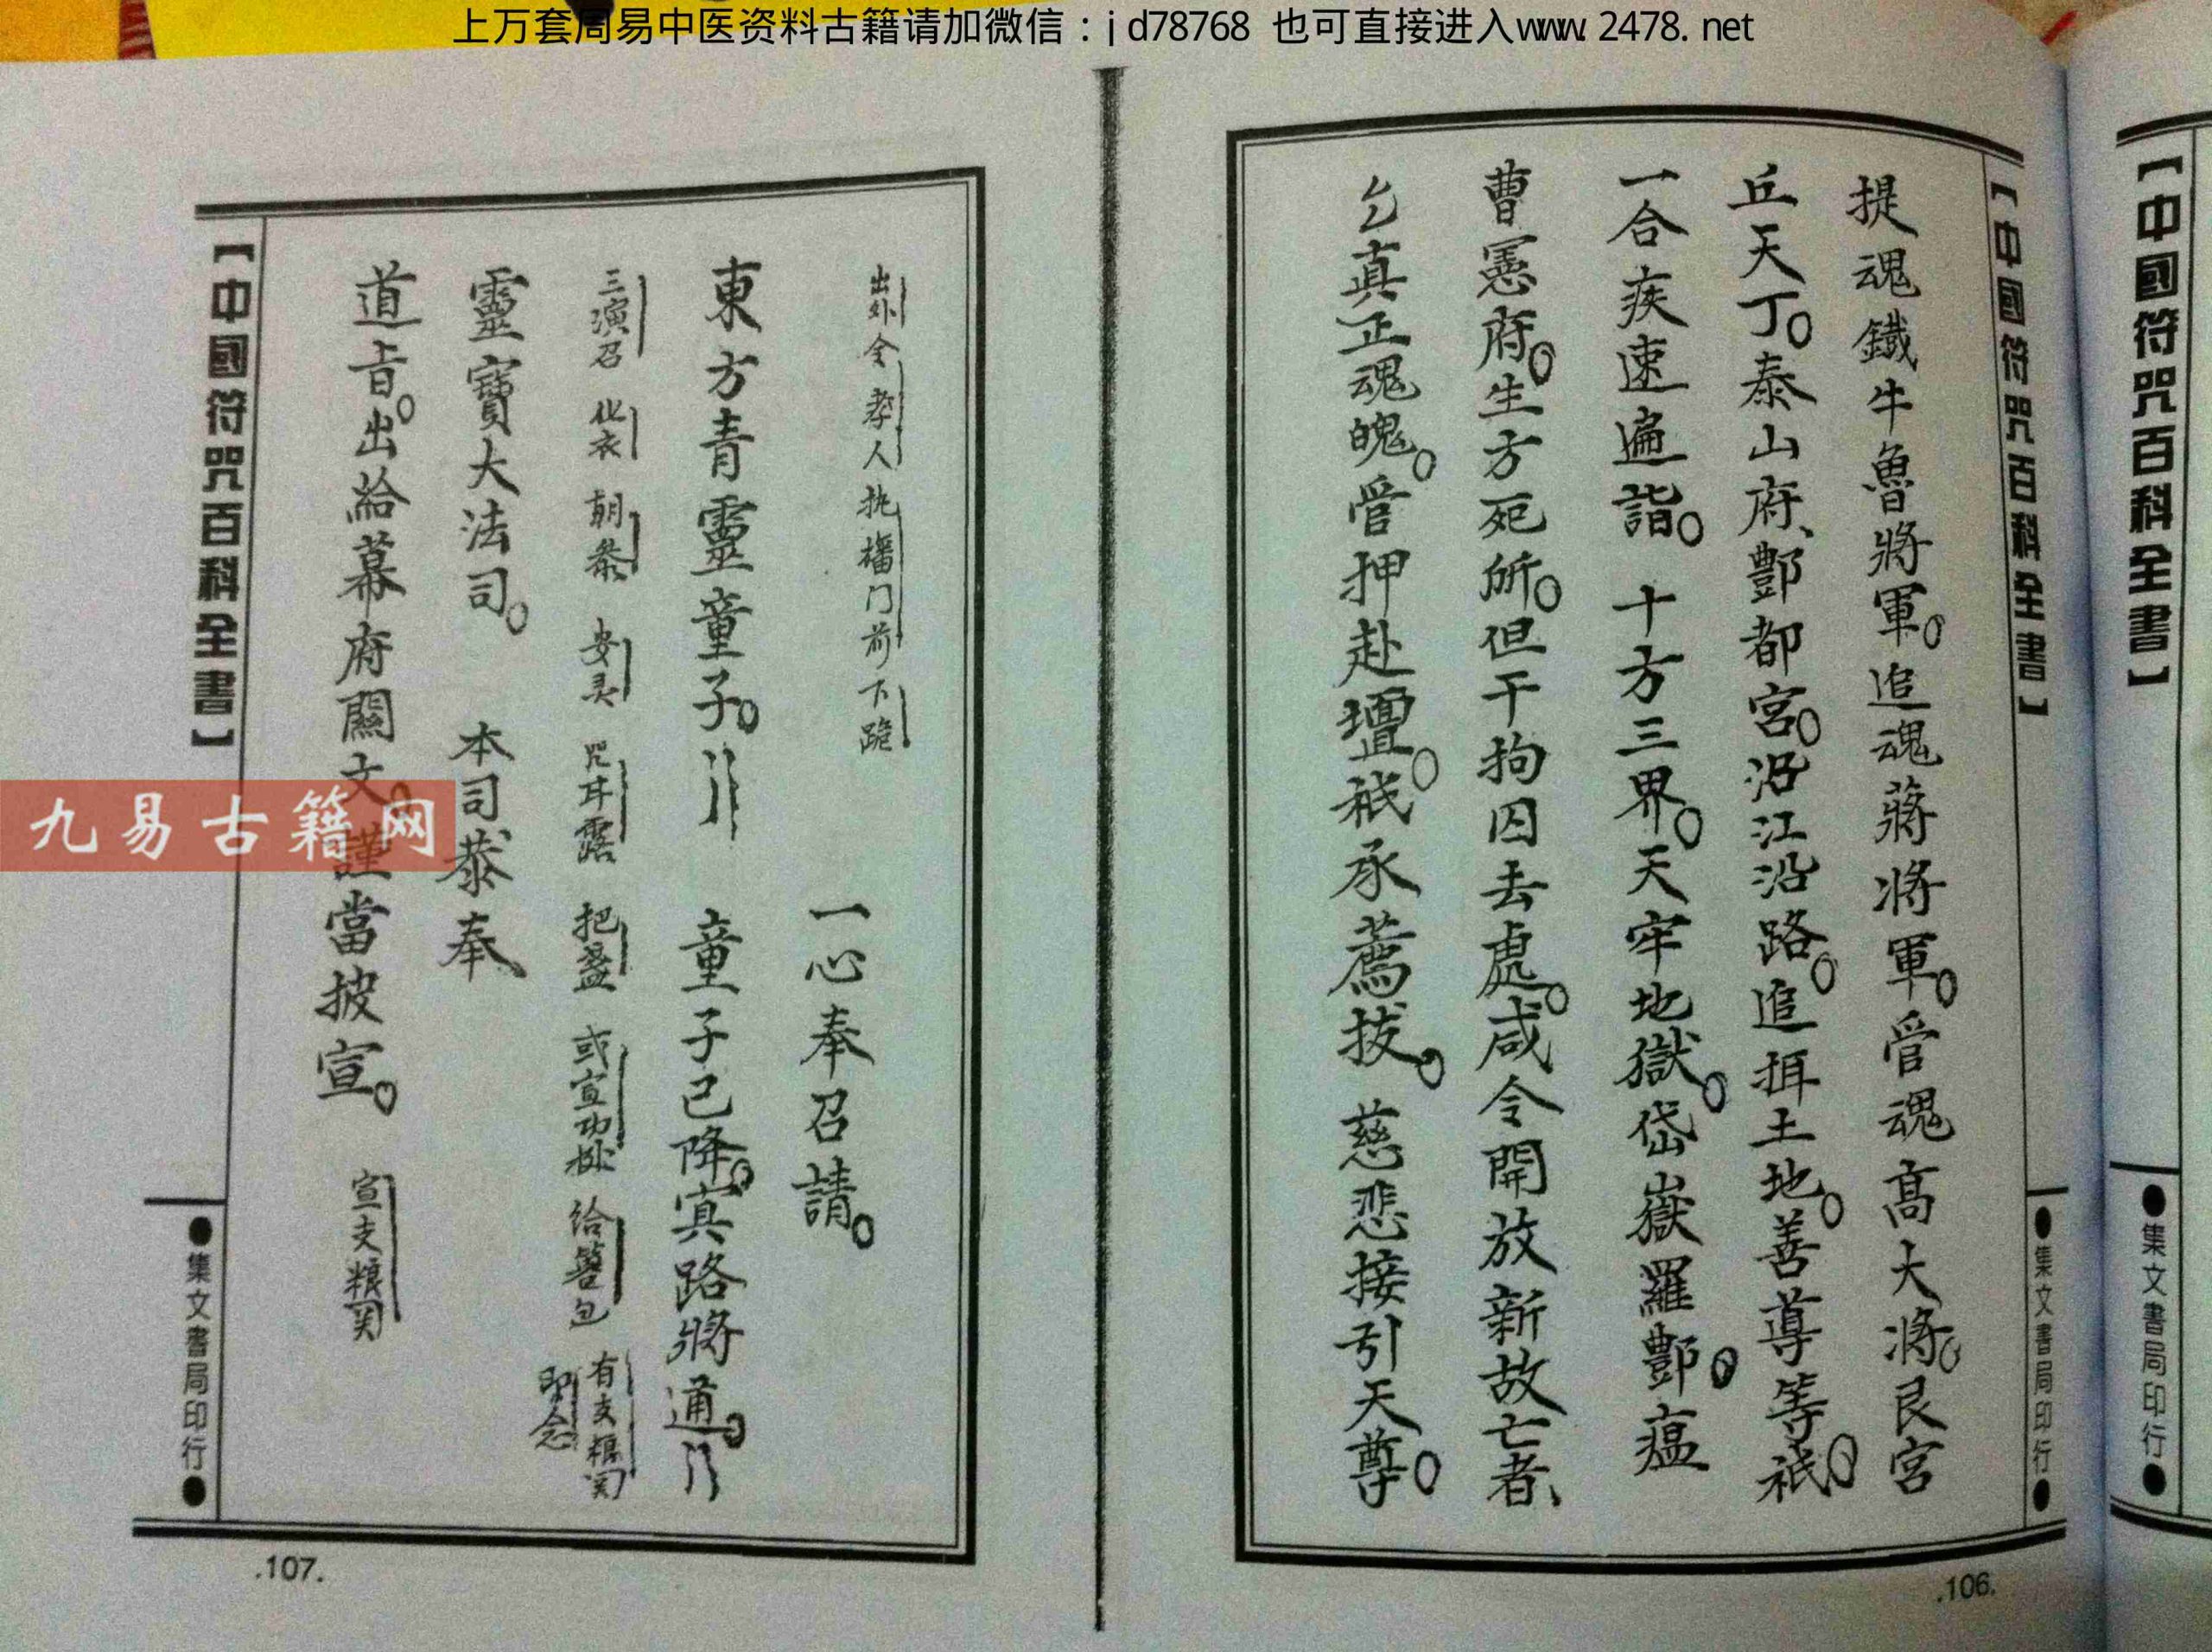 上万套周易中医资料古籍请加微信：jd78768 也可直接进入www.2478.net
【中國符咒百科全書】
●集文書局印行●
【中國符咒百科全書】
●集文書局印行●
提魂鐵牛魯將軍。追魂蔣將軍。管魂高大將。艮宮
丘天丁。泰山府、酆都宮。沿江沿路。追土地。善導等衹。
一合疾速遍詣。十方三界。天牢地獄。岱嶽羅酆。瘟
曹憲府。生方死所。但干拘囚去處。咸令開放新故亡者、
乞真正魂魄。管押赴壇。祇承薦拔。慈悲接引天尊。
.106.
出外令孝人执旛门前下跪
一心奉召請。
東方青靈童子。童子已降。冥路將通。
三演召 化衣 朝叅 安灵 咒甘露 把盞 或宣功 给簪包 有支粮関
即念
靈寶大法司。本司恭奉
道旨。出給幕府關文。謹當披宣。宣支粮関
【中國符咒百科全書】
●集文書局印行●
.107.
九易古籍网